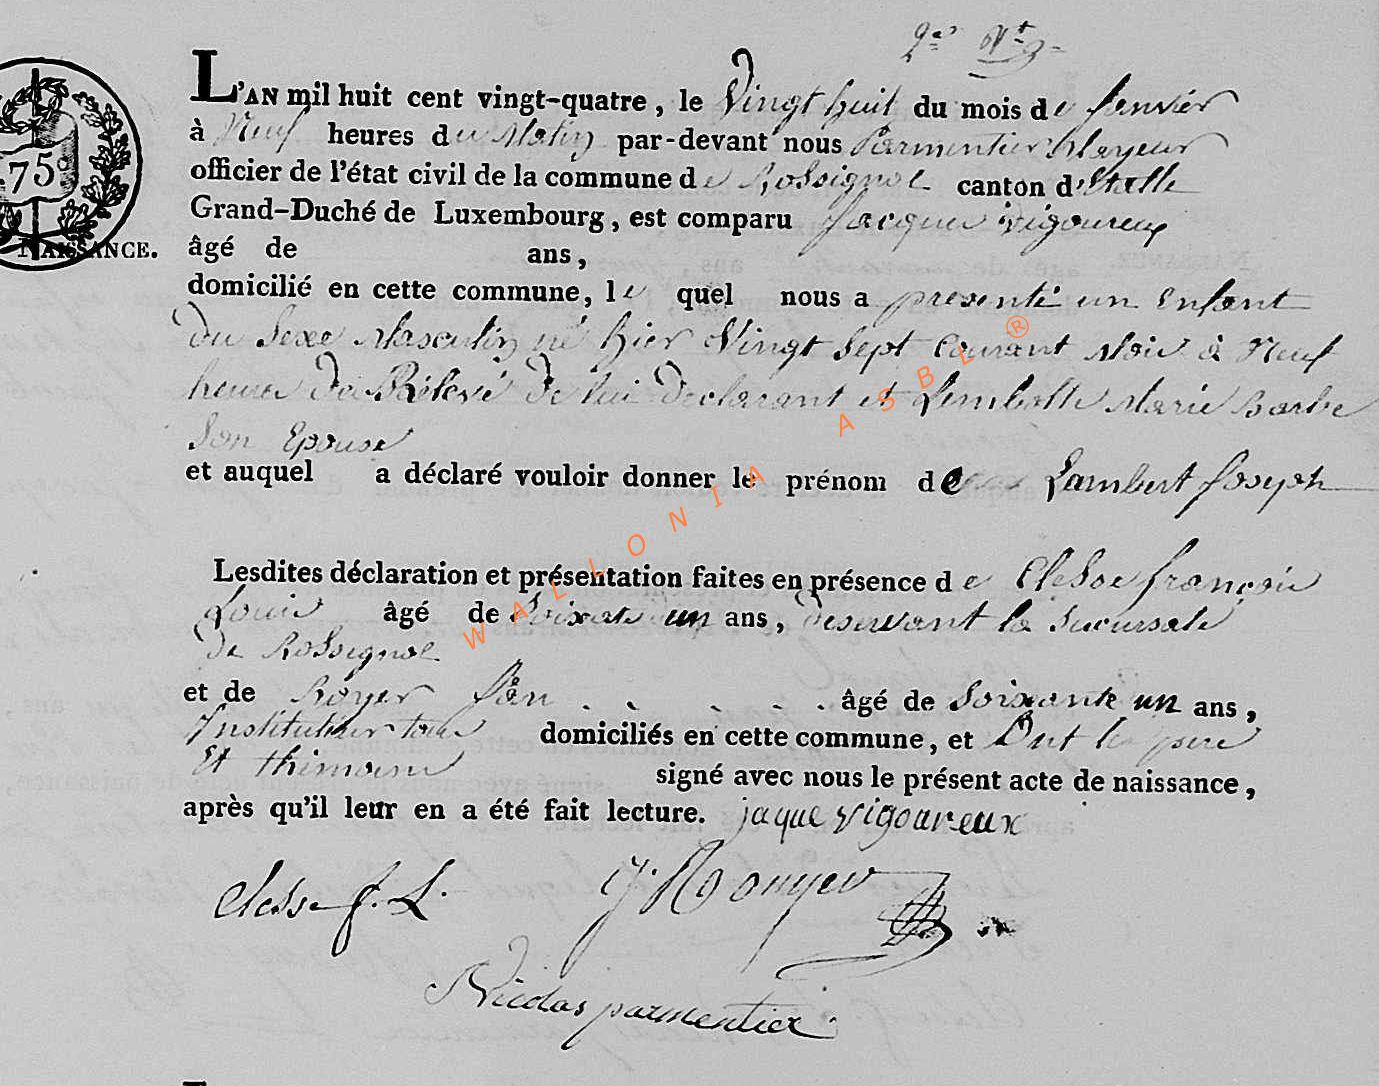 2e Nt
L'AN mil huit cent vingt-quatre, le Vingt huit du mois de Janvier
à Neuf heures du Matin par-devant nous Parmentier Mayeur
officier de l'état civil de la commune de Rossignol canton d'Etalle
Grand-Duché de Luxembourg, est comparu Jacques Vigoureux
75c
NAISSANCE.
âgé de ans,
domicilié en cette commune, le quel nous a presenté un Enfant
du Sexe Masculin né hier Vingt Sept Courant Mois à Neuf
heures du Rélevé de lui declarant et Lemballe Marie Barbe
Son Epouse
et auquel a déclaré vouloir donner le prénom de Lambert Joseph
Lesdites déclaration et présentation faites en présence de Clesse françois
Louis âgé de Soixante un ans, deservant la Sucursale
De Rossignol
et de Royer Jean âgé de Soixante un ans,
Instituteur tous domiciliés en cette commune, et Ont le pere
Et thémoins signé avec nous le présent acte de naissance,
après qu'il leur en a été fait lecture. jaque vigoureux
Clesse f. L. J. Rouyer
Nicolas parmentier
WALLONIA ASBL ®